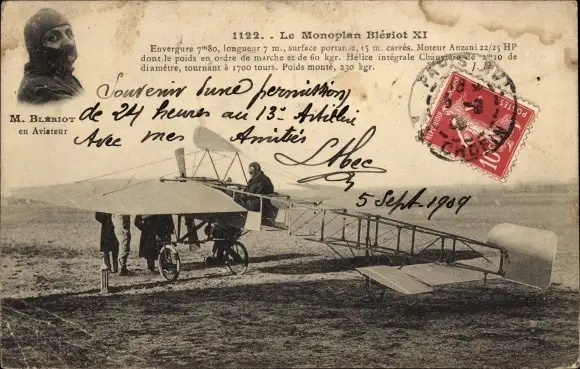 1122. - Le Monoplan Blériot XI
Envergure 7m80, longueur 7 m., surface portante, 15 m. carrés. Moteur Anzani 22/25 HP
dont le poids en ordre de marche et de 60 kgr. Hélice intégrale Chauvière de 2m10 de
diamètre, tournant à 1700 tours. Poids monté, 230 kgr.
J. H.
M. BLÉRIOT
en Aviateur
Souvenir d'une permission
de 24 heures au 13e Artillerie
Avec mes Amitiés
5 Sept. 1909
POSTES
10